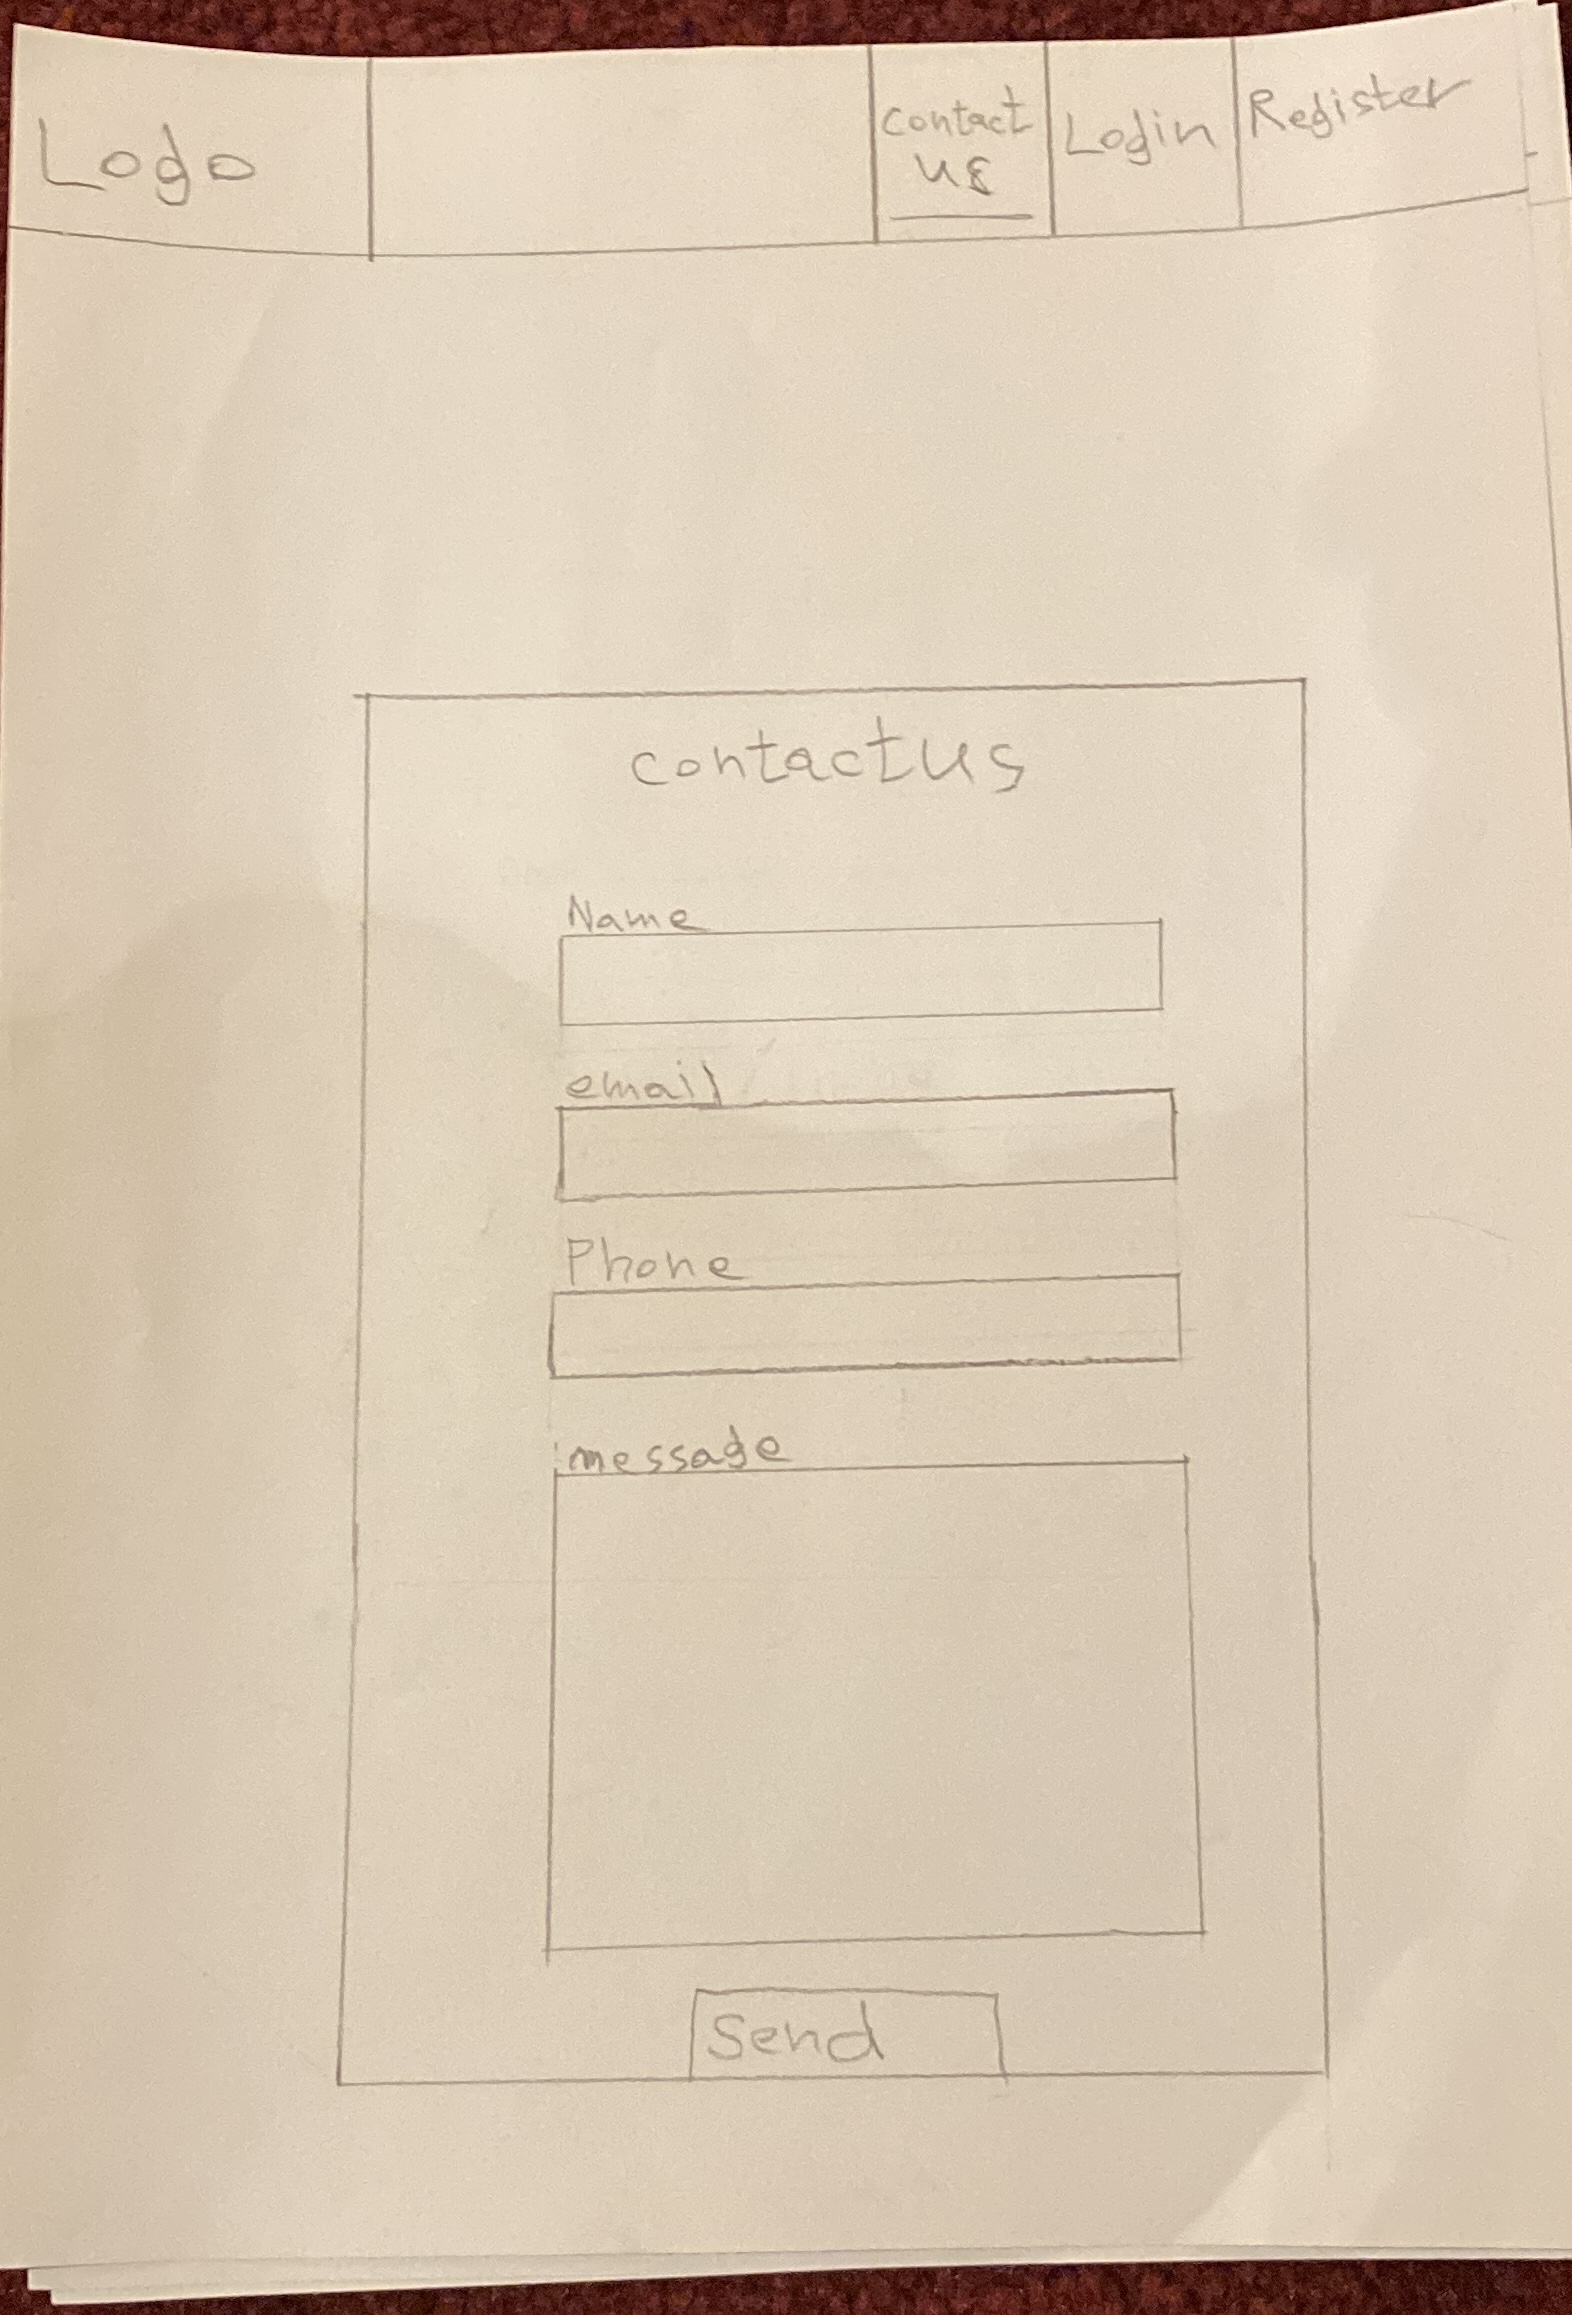 Logo
contact
us
Login
Register
contact us
Name
email
Phone
message
Send